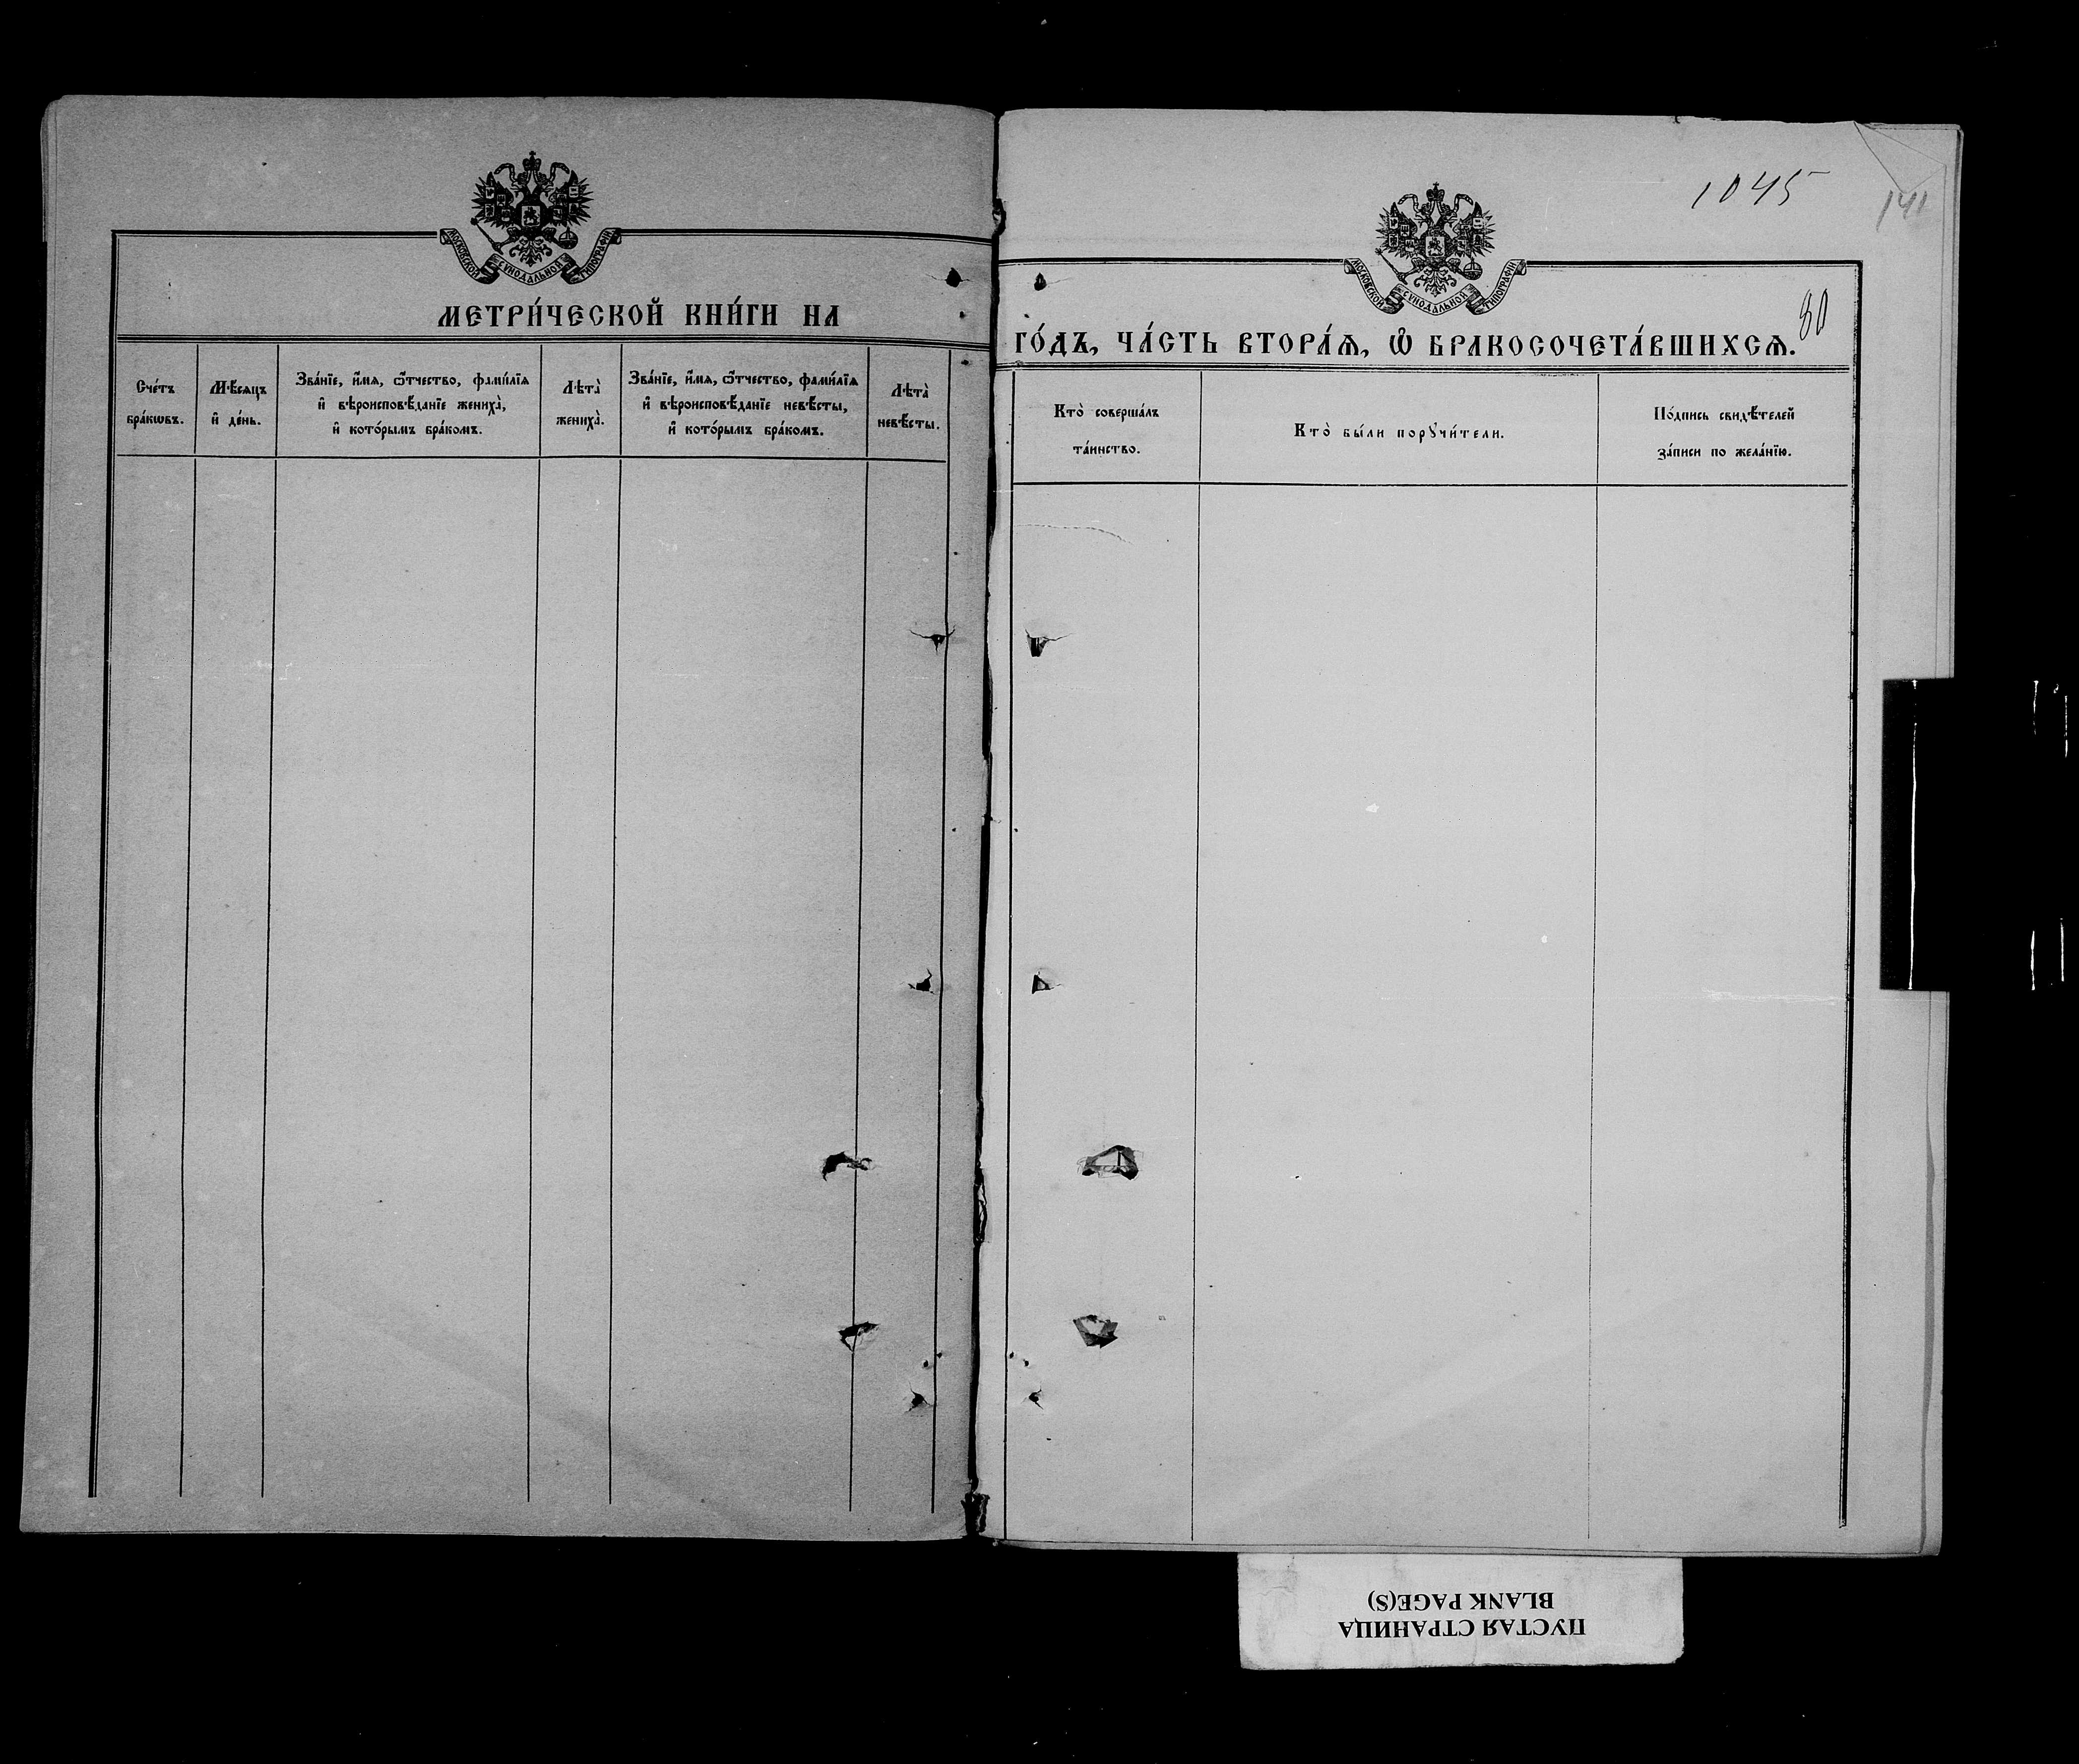 МОСКОВСКОЙ СѴНОДАЛЬНОЙ ТИПОГРАФІИ
МЕТРИ́ЧЕСКОЙ КНИ́ГИ НА
Сче́тъ
бра́кωвъ.
Мѣ́сяцъ
и҆ де́нь.
Зва́нїе, и҆́мѧ, ѻ҆́тчество, фами́лїѧ
и҆ вѣроисповѣ́данїе жениха̀,
и҆ кото́рымъ бра́комъ.
Лѣта̀
жениха̀.
Зва́нїе, и҆́мѧ, ѻ҆́тчество, фами́лїѧ
и҆ вѣроисповѣ́данїе невѣ́сты,
и҆ кото́рымъ бра́комъ.
Лѣта̀
невѣ́сты.
1045
141
МОСКОВСКОЙ СѴНОДАЛЬНОЙ ТИПОГРАФІИ
80
ГО́ДЪ, ЧА́СТЬ ВТОРА́Ѧ, Ѡ҆ БРАКОСОЧЕТА́ВШИХСѦ.
Кто̀ соверша́лъ
та́инство.
Кто̀ бы́ли порꙋчи́тели.
По́дпись свидѣ́телей
за́писи по жела́нїю.
ПУСТАЯ СТРАНИЦА
BLANK PAGE(S)